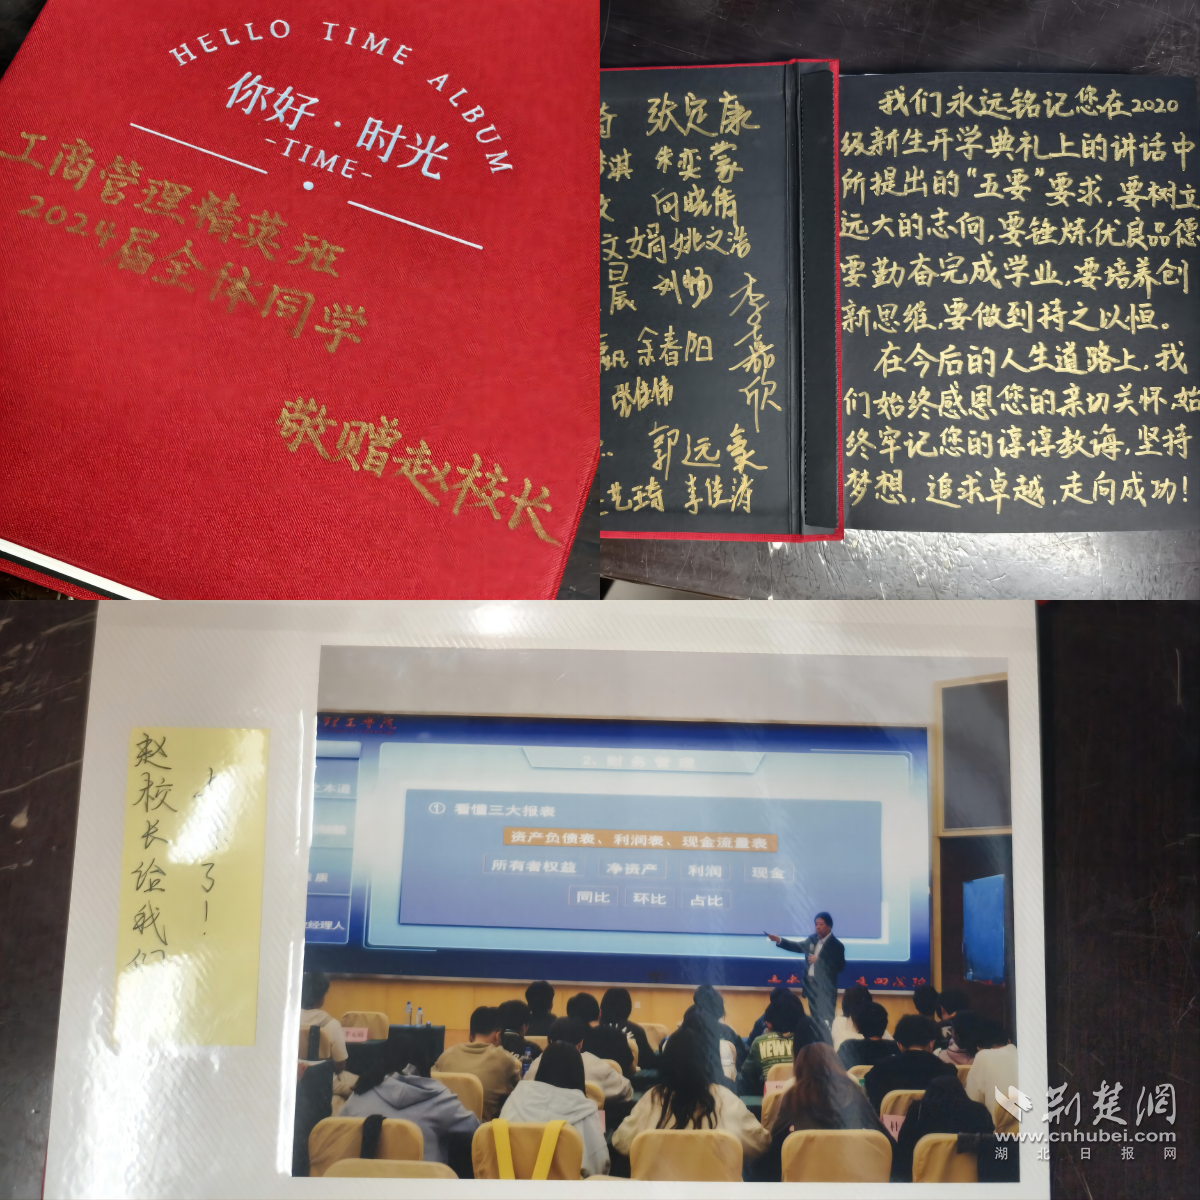 HELLO TIME ALBUM
你好·时光
-TIME-
工商管理精英班
2024届全体同学
敬赠赵校长
张定康
淇 朱奕蒙
向晓倩
文娟 姚文浩
刘畅
李嘉欣
余春阳
郭远豪
艺琦 李佳涛
我们永远铭记您在2020
级新生开学典礼上的讲话中
所提出的“五要”要求，要树立
远大的志向，要锤炼优良品德
要勤奋完成学业，要培养创
新思维，要做到持之以恒。
在今后的人生道路上，我
们始终感恩您的亲切关怀，始
终牢记您的谆谆教诲，坚持
梦想，追求卓越，走向成功！
赵校长给我们
了！
2、财务管理
① 看懂三大报表
资产负债表、利润表、现金流量表
所有者权益 净资产 利润 现金
同比 环比 占比
经理人
荆楚网
www.cnhubei.com
湖北日报网